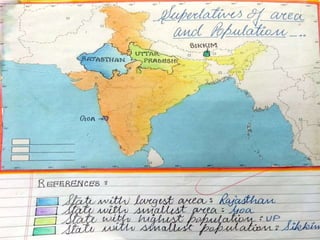 Superlatives of area
and Population ...
BIKKIM
UTTAR
PRADESH
RAJASTHAN
Goa
REFERENCES :
State with largest area : Rajasthan
State with smallest area : Goa
State with highest population : UP
State with smallest population : Sikkim